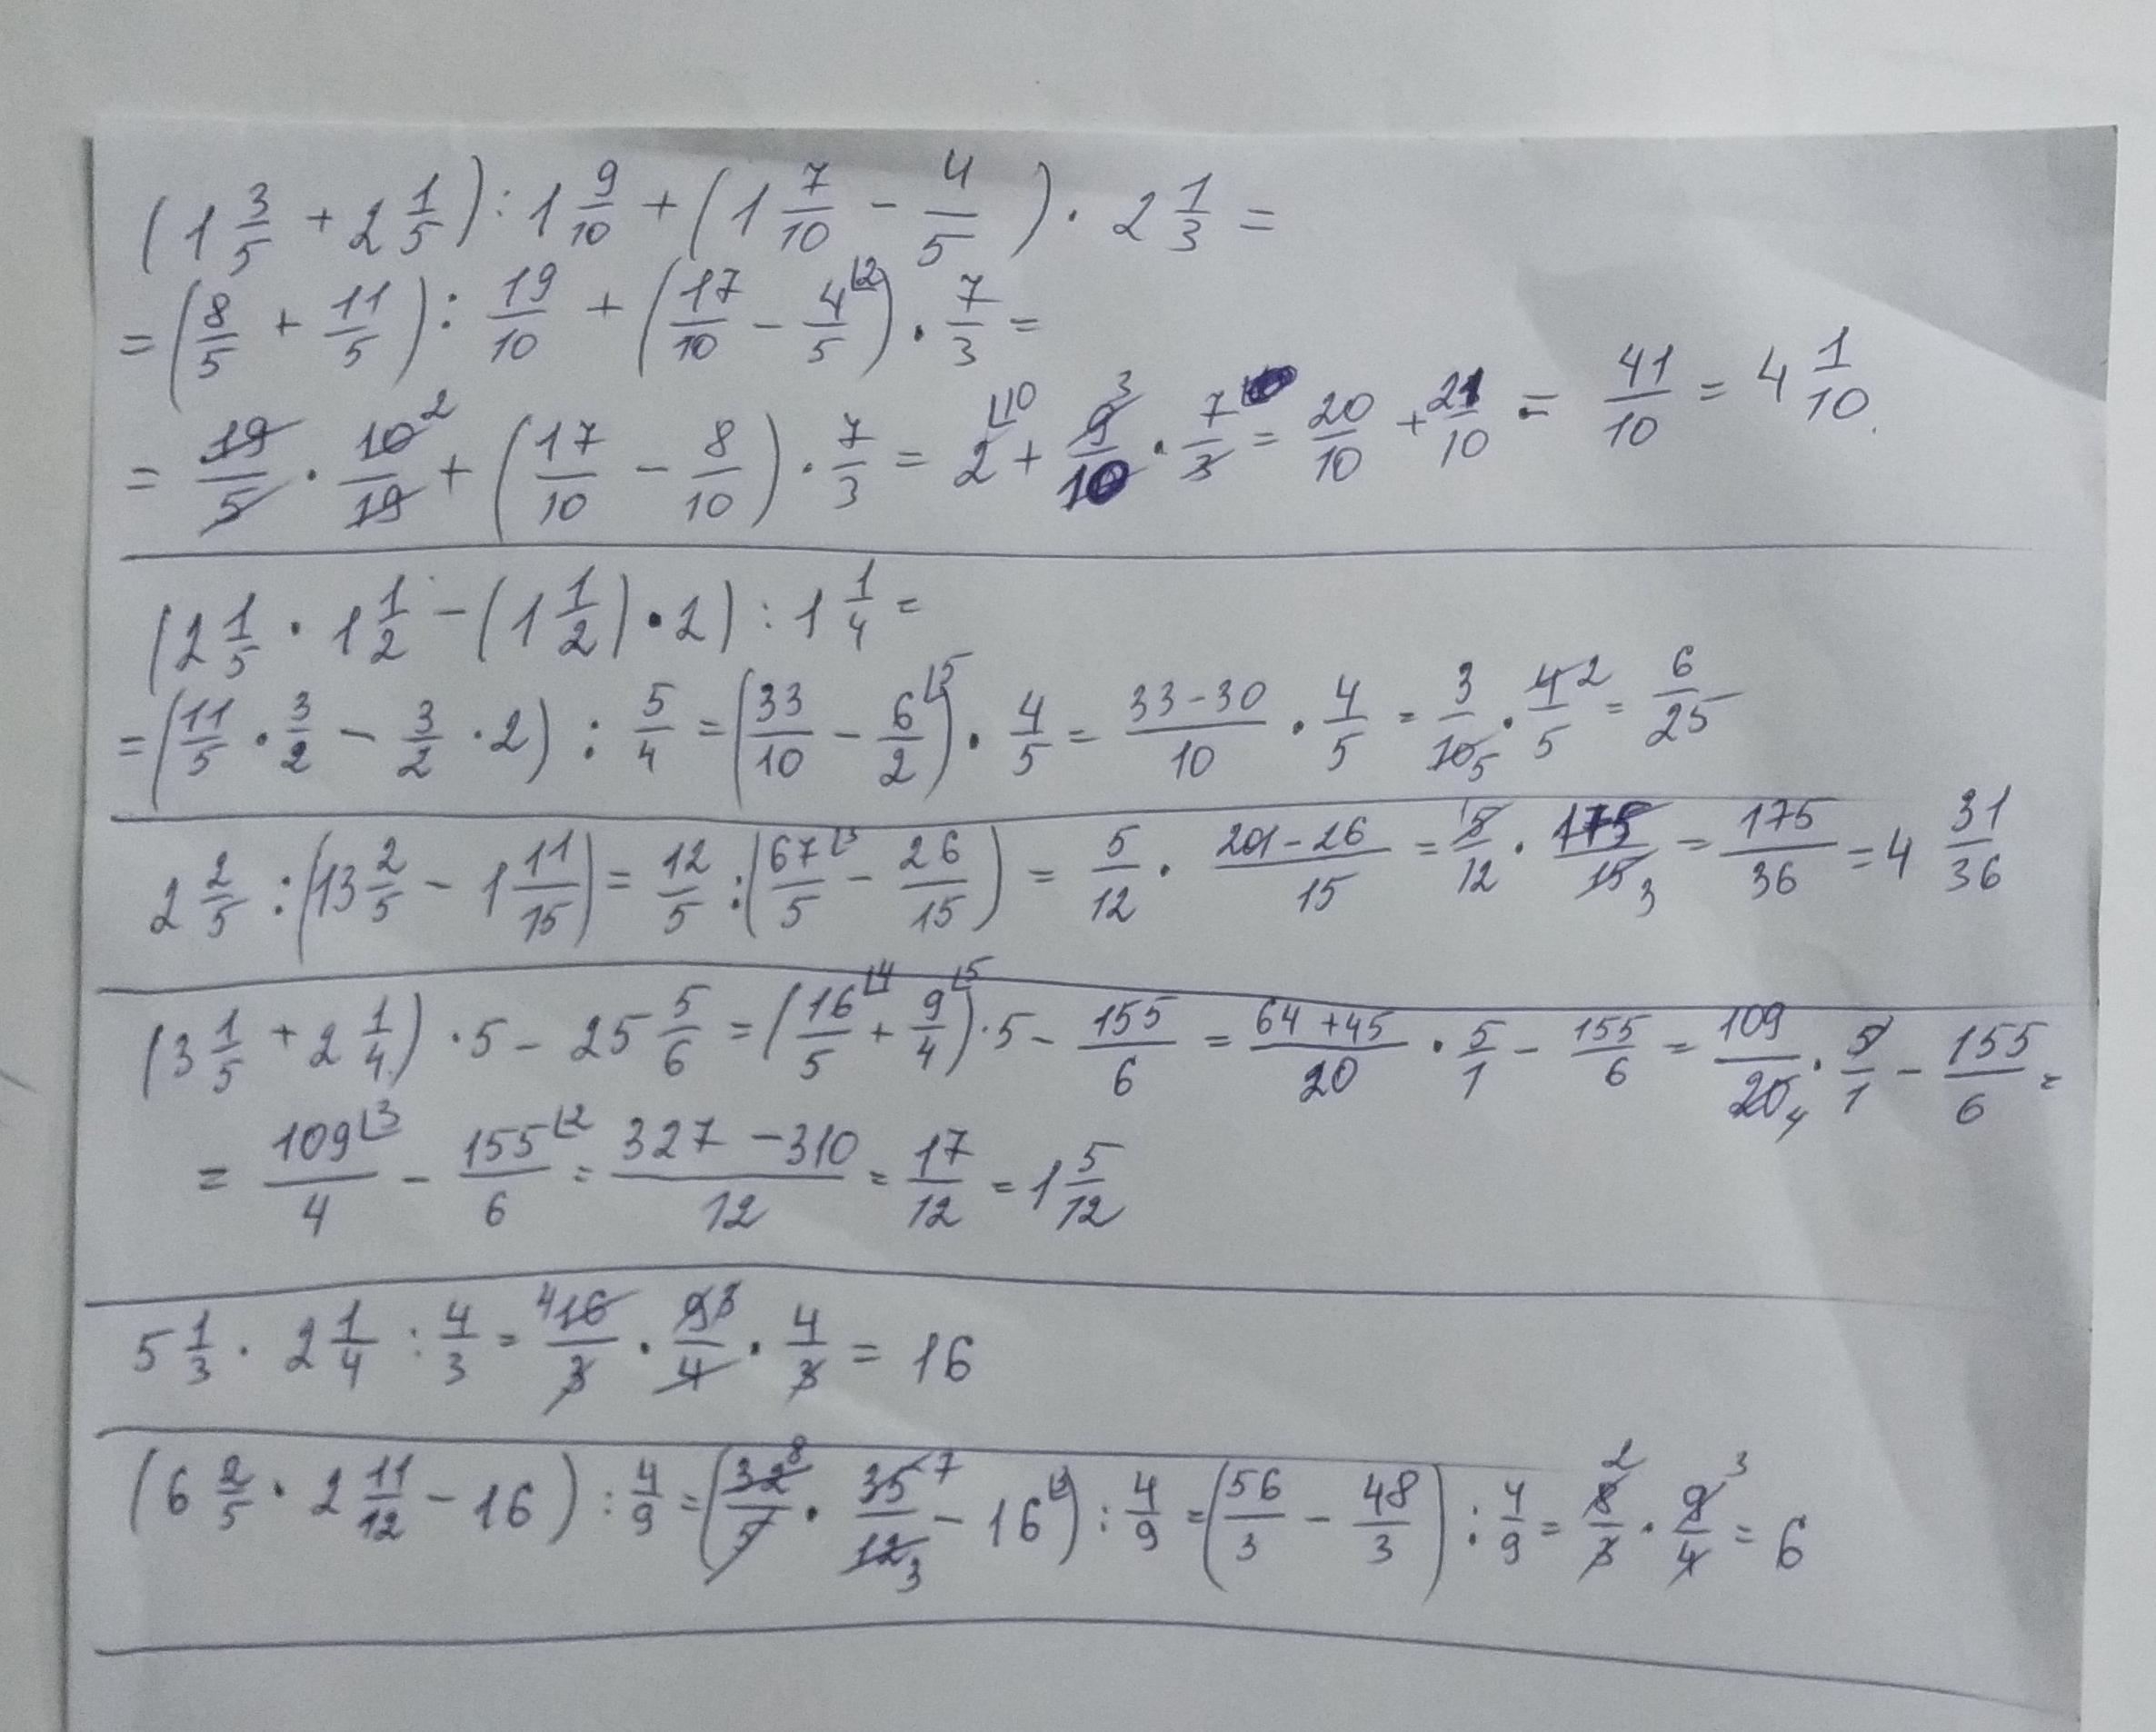 (1 3/5 + 2 1/5) : 1 9/10 + (1 7/10 - 4/5) · 2 1/3 =
= (8/5 + 11/5) : 19/10 + (17/10 - 4/5 ⌊2) · 7/3 =
= 19/5 · 10/19 2 + (17/10 - 8/10) · 7/3 = 2 ⌊10 + 9/10 3 · 7/3 = 20/10 + 21/10 = 41/10 = 4 1/10.
(2 1/5 · 1 1/2 - (1 1/2) · 2) : 1 1/4 =
= (11/5 · 3/2 - 3/2 · 2) : 5/4 = (33/10 - 6/2 ⌊5) · 4/5 = 33-30/10 · 4/5 = 3/10 5 · 4/5 2 = 6/25
2 2/5 : (13 2/5 - 1 11/15) = 12/5 : (67/5 ⌊3 - 26/15) = 5/12 · 201-26/15 = 1 5/12 · 175/15 3 = 175/36 = 4 31/36
(3 1/5 + 2 1/4) · 5 - 25 5/6 = (16/5 ⌊4 + 9/4 ⌊5) · 5 - 155/6 = 64+45/20 · 5/1 - 155/6 = 109/20 4 · 5/1 - 155/6 =
= 109/4 ⌊3 - 155/6 ⌊2 = 327-310/12 = 17/12 = 1 5/12
5 1/3 · 2 1/4 : 4/3 = 4 16/3 · 9/4 3 · 4/3 = 16
(6 2/5 · 2 11/12 - 16) : 4/9 = (32/5 8 · 35/12 7 3 - 16 ⌊3) : 4/9 = (56/3 - 48/3) : 4/9 = 8/3 2 · 9/4 3 = 6